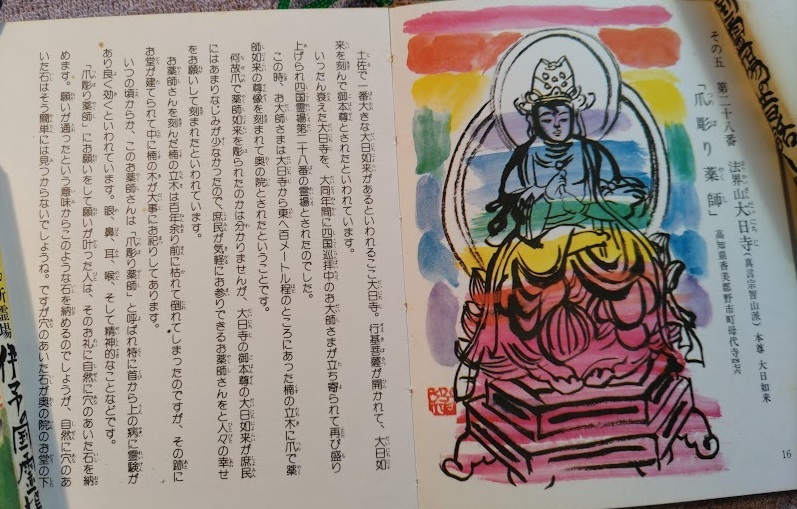 その五　第二十八番　法界山大日寺（真言宗智山派）本尊　大日如来
「爪彫り薬師」　高知県香美郡野市町母代寺
16
土佐で一番大きな大日如来があるといわれるここ大日寺。行基菩薩が開かれて、大日如
来を刻んで御本尊とされたといわれています。
いったん衰えた大日寺を、大同年間に四国巡拝中のお大師さまが立ち寄られて再び盛り
上げられ四国霊場第二十八番の霊場とされたのでした。
この時、お大師さまは大日寺から東へ百メートル程のところにあった楠の立木に爪で薬
師如来の尊像を刻まれて奥の院とされたということです。
何故爪で薬師如来を彫られたのかは分かりませんが、大日寺の御本尊の大日如来が庶民
にはあまりなじみが少なかったので、庶民が気軽にお参りできるお薬師さんをと人々の幸せ
をお願いして刻まれたといわれています。
お薬師さんを刻んだ楠の立木は百年余り前に枯れて倒れてしまったのですが、その跡に
お堂が建てられて中に楠の木が大事にお祀りしてあります。
いつの頃からか、このお薬師さんは「爪彫り薬師」と呼ばれ特に首から上の病に霊験が
あり良く効くといわれています。眼、鼻、耳、喉、そして精神的なことなどです。
「爪彫り薬師」にお願いをして願いが叶った人は、そのお礼に自然に穴のあいた石を納
めます。願いが通ったという意味からこのような石を納めるのでしょうが、自然に穴のあ
いた石はそう簡単には見つからないでしょうね。ですが穴のあいた石が奥の院のお堂の下
霊場
伊予の国